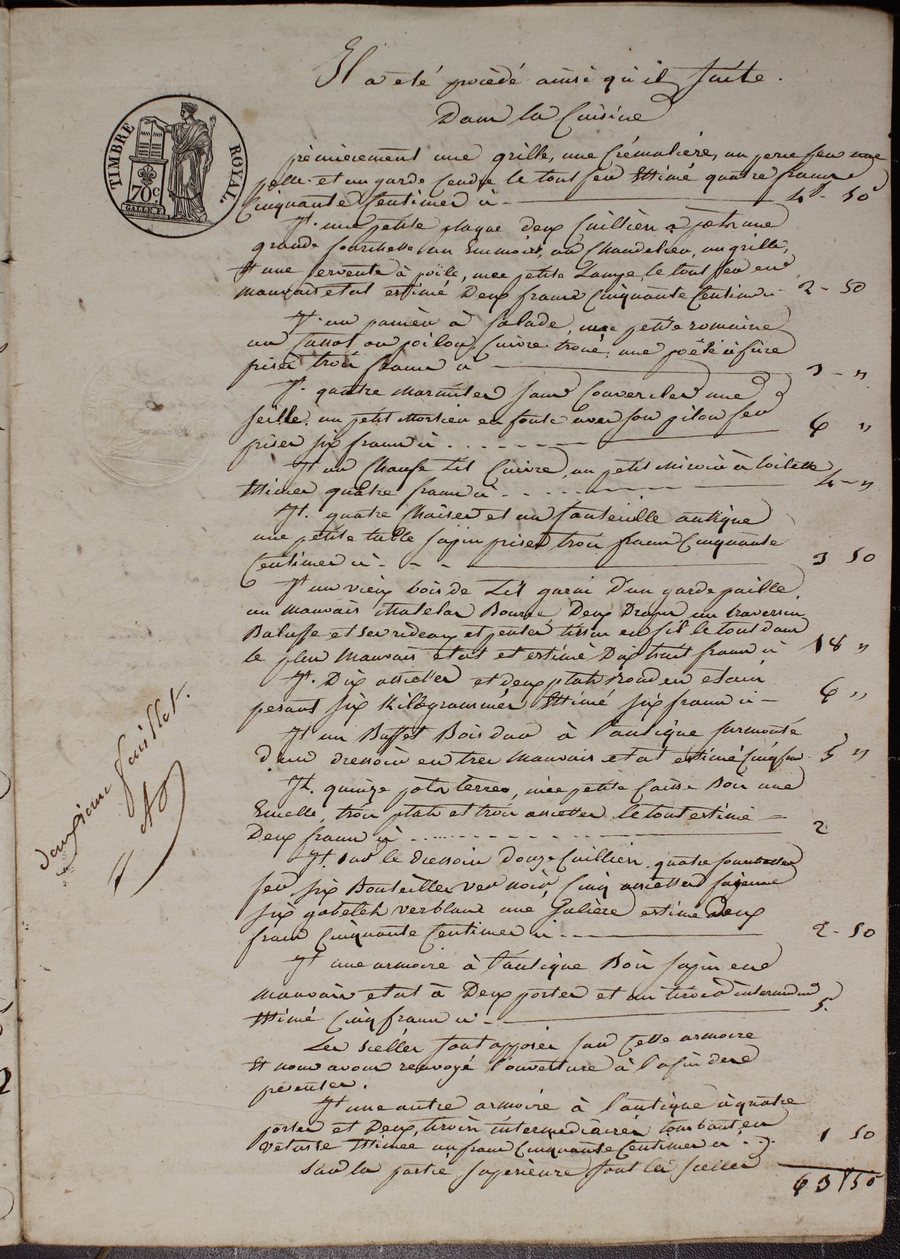 Il a été procédé ainsi qu'il suite.
Dans la Cuisine
TIMBRE ROYAL.
70c.
premièrement une grille, une Crémalière, un porte feu une
pelle et un garde Cendre le tout fer Estimé quatre francs
Cinquante Centimes ci - 4f - 50c
It. une petite plaque deux Cuillièr a pots une
grande fourchette un Emmoire, un Chandelier, un grille,
Et une servente à poële, une petite Lampe, le tout fer en
mauvais etat estimé Deux francs Cinquante Centimes ci - 2 - 50
It. un panier à Salade, une petite romaine
un Cassot ou poilon Cuivre troué, une poële à frire
priser trois francs ci - 3 - "
It. quatre marmites sans Couvercles une
seille, un petit Mortier en fonte avec son pilon fer
priser six francs ci - 6 "
It un Chaufe Lit Cuivre, un petit miroir à toilette
Estimes quatre francs ci - 4 - "
It. quatre Chaises et un fauteuille antique
une petite table sapin prises trois francs Cinquante
Centimes ci - 3 50
It un vieux bois de Lit garni D'un garde paille,
un mauvais Matelas Bourre, Deux Draps un traversin
Baluffe et ses rideaux et pentes tissu en fil le tout dans
le plus Mauvais etat et estimé Dix huit francs ci 18 "
It. Dix assiettes et deux plats rond en etain
pesant six Kilogrammes Estimé six francs ci - 6 "
It un Buffet Bois dur à l'antique surmonté
d'un dressoir en tres Mauvais etat estimé Cinq fr. 5 "
It. quinze pots terres, une petite Caisse Bois une
Ecuelle, trois plats et trois assiettes le tout estimé
Deux francs ci - 2
It sur le dressoir douze Cuillièr quatre fourchettes
fer six Bouteilles ver noir, Cinq assiettes fayence
six gobelets verblanc une Salière estime Deux
francs Cinquante Centimes ci - 2 - 50
It une armoire à l'antique Bois sapin en
mauvais etat à Deux portes et un tiroir intermédre
Estimé Cinq francs ci - 5.
Les scéllés sont apposés sur Cette armoire
Et nous avons renvoyé l'ouverture à la fin des
présentes.
It une autre armoire à l'antique à quatre
portes et Deux tiroirs intermédiaires tombant en
vétuste Estimée un franc Cinquante Centimes ci - 1 50
Sur la partie supérieure sont les scellés
63f 50
deuxieme feuillet.